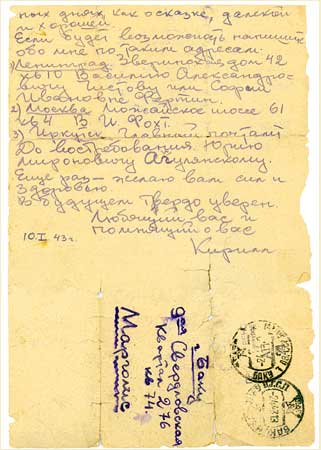 ных днях, как о сказке, далекой
и хорошей.
Если будет возможность напишите
обо мне по таким адресам:
1) Ленинград. Зверинская дом 42
кв 10 Василию Александро-
вичу Чистову или Софии
Ивановне Фертин.
2) Москва Можайское шоссе 61
кв 4 В И. Фохт.
3) Иркутск Главный почтамт
До востребования. Юрию
Мироновичу Ачулянскому.
Еще раз – желаю вам сил и
здоровья.
В будущем твердо уверен.
Любящий вас и
помнящий о вас
Кирилл
10.I 43 г.
г Баку
Свердловская
д 76
кв 74.
Марголис